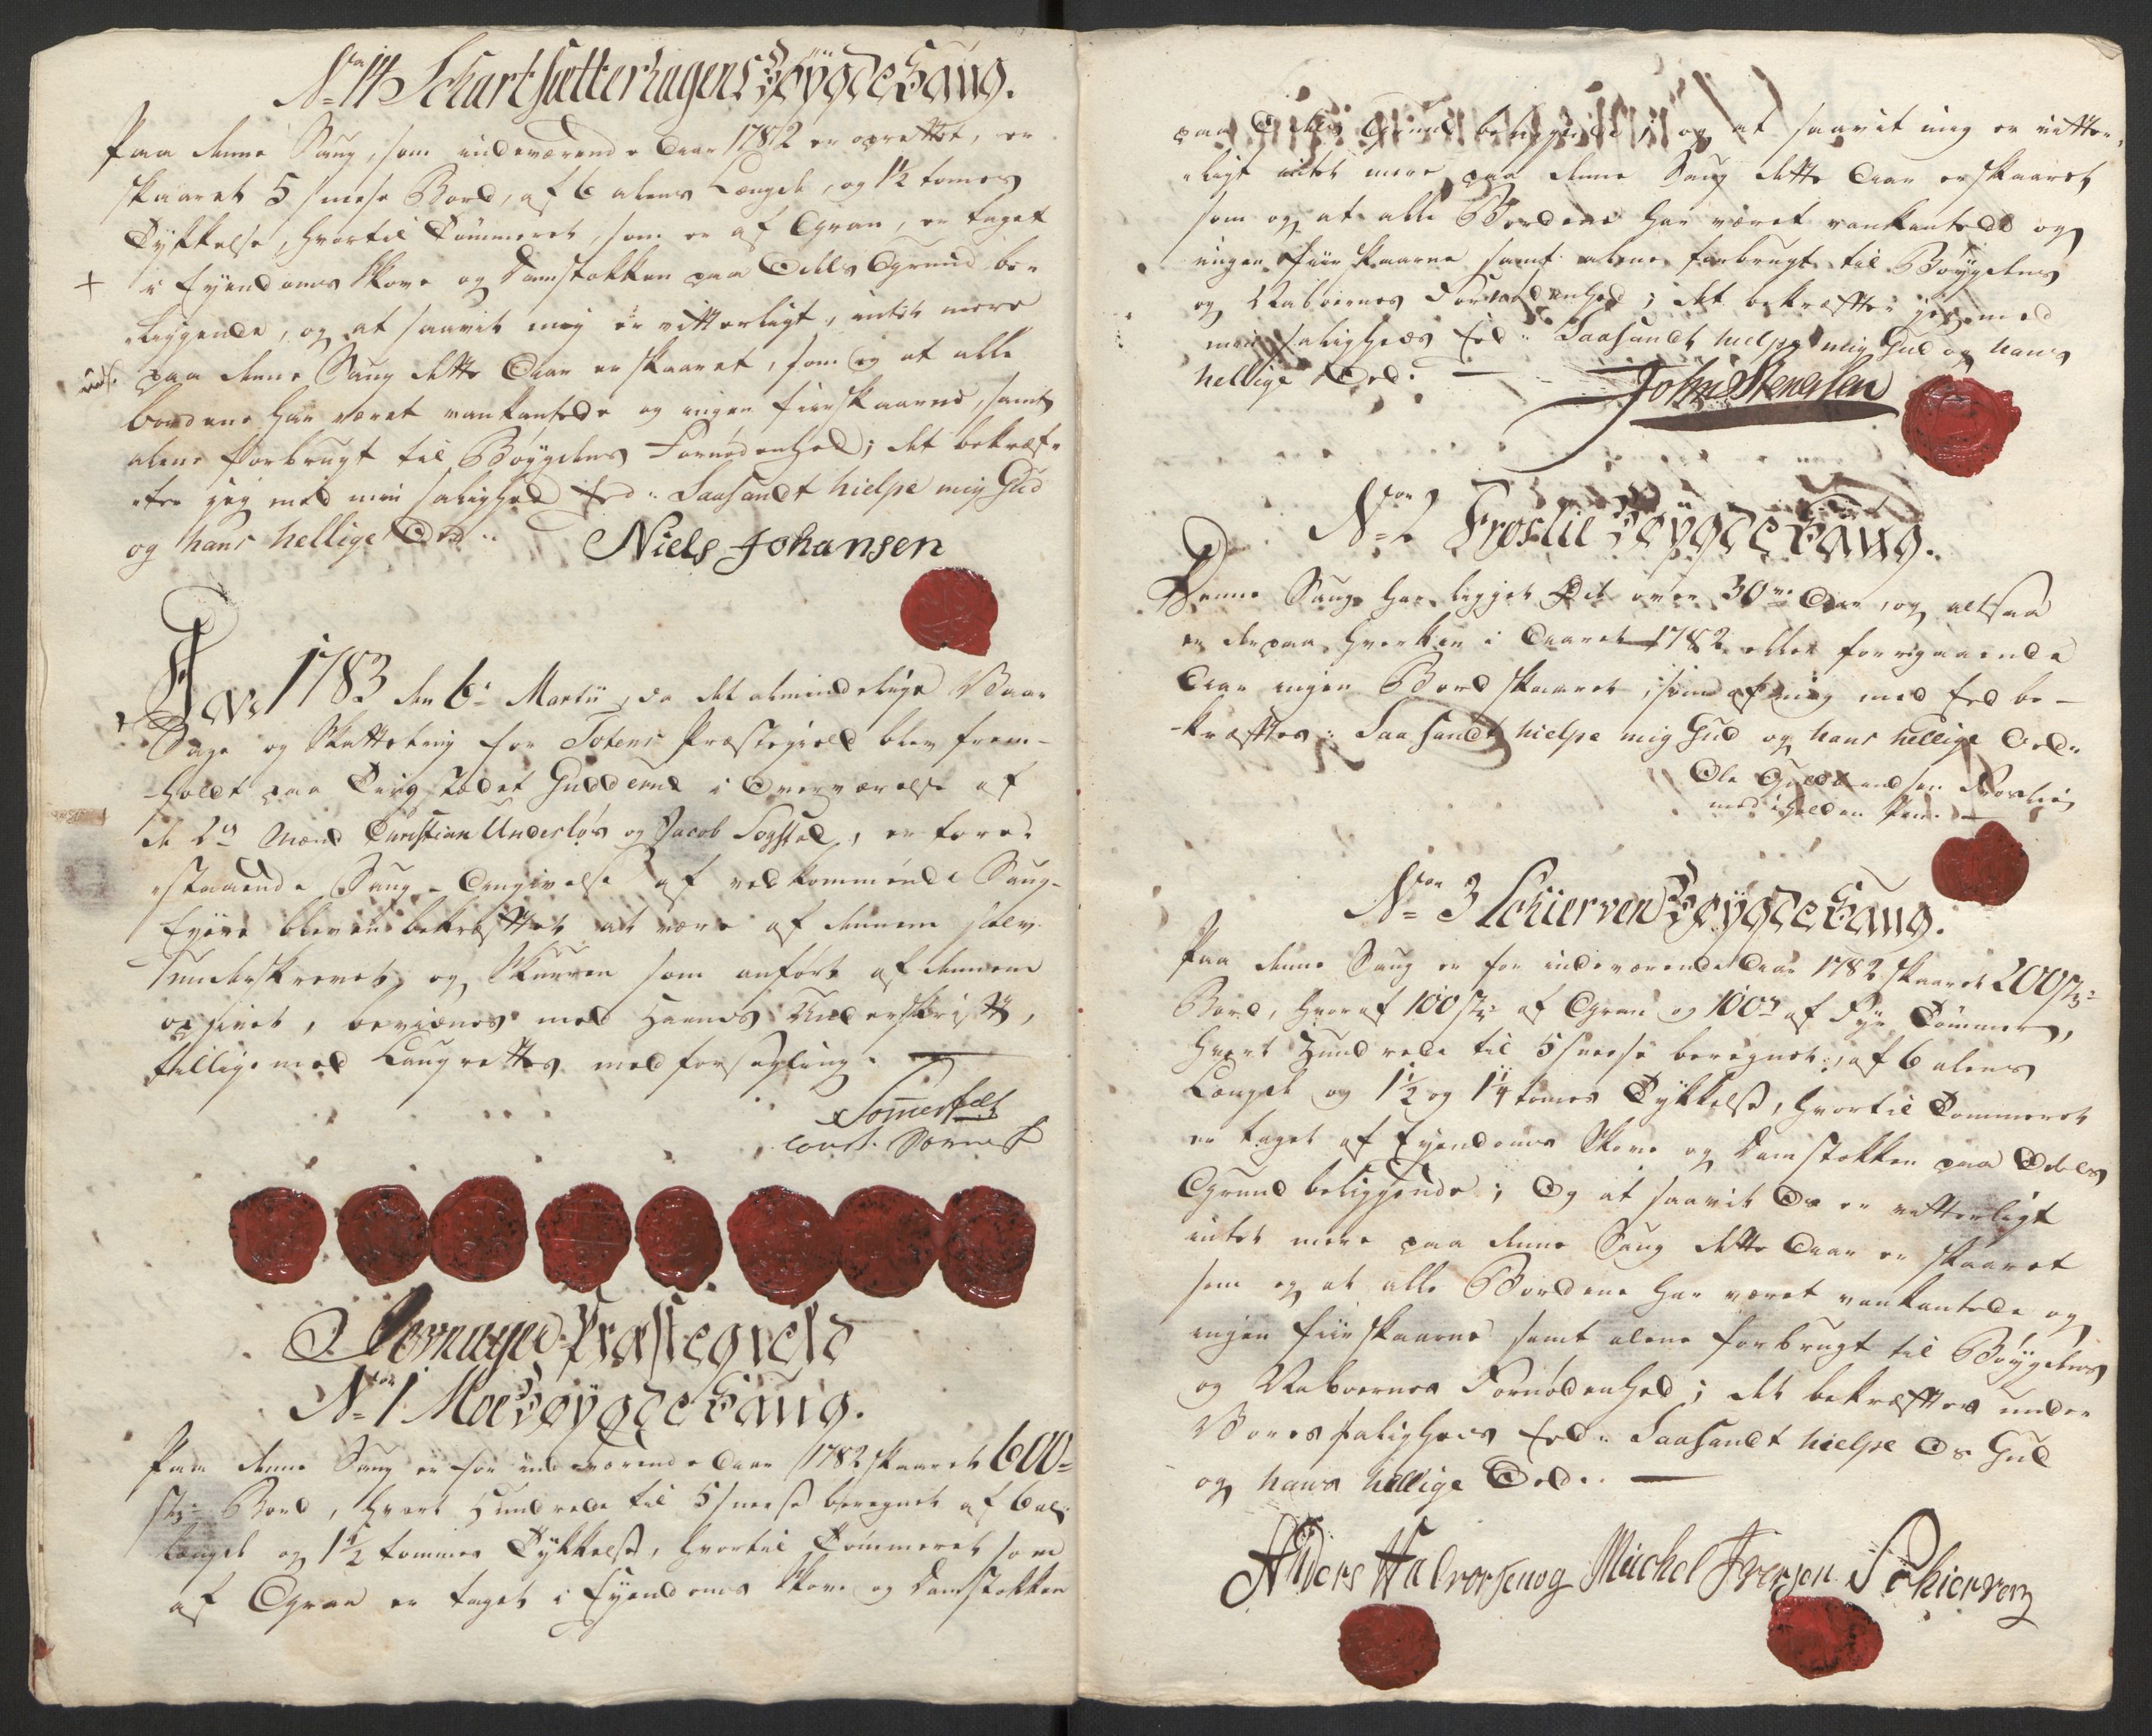 No 14 Schartsætterhagens Bøygde Saug.
Paa denne Saug, som indeværende Aar 1782 er oprettet, er
skaaret 5 sneese Bord, af 6 alens Længde, og 1½ tomes
Tykkelse, hvortil Tømmeret, som er af Gran, er taget
i Eyendoms Skove og Damstokken paa Odels Grund be-
liggende, og at saavit mig er vitterligt, intet mere
paa denne Saug dette Aar er skaaret, som og at alle
bordene har været vankantede og ingen fiirskaarne, samt
alene forbrugt til Bøygdens Fornødenhed; det bekræf-
ter jeg med min saligheds Eed: Saasandt hielpe mig Gud
og hans hellige Ord.
Niels Johansen
Anno 1783 den 6. Martii, da det almindelige Vaar
Sage og Skatteting for Totens Præstegield blev frem-
holdt paa Tingstædet Gudderud i Overværelse af
de 2de Mænd Christian Underløs og Jacob Sogstad, er fore-
staaende Saug-Angivelse af vedkommende Saug-
Eyere bleven bekræftet at være af dennem selv
underskrevet, og Skuuren som anført af dennem
opgivet, bevidnes med Haands Underskrift,
tillige med Laugrettes medforsegling.
Somerfelt
const. Sorens
Præstegield
No 1 Moe Bøygde Saug.
Paa denne Saug er for indeværende Aar 1782 skaaret 600
st: Bord, hvert Hundrede til 5 sneese beregnet af 6 al:
Længde og 1½ tommes Tykkelse, hvortil Tømmeret som
af Gran er taget i Eyendoms Skove og Damstokken
paa Odels Grund beliggende; og at saavit mig er vitter-
ligt intet mere paa denne Saug dette Aar er skaaret
som og at alle Bordene har været vankantede og
ingen fiirskaarne samt alene forbrugt til Bøygdens
og Naboernes Fornødenhed; det bekræfter jeg med
min saligheds Eed: Saasandt hielpe mig Gud og hans
hellige Ord.
John Stenersen
No 2 Froslie Bøygde Saug.
Denne Saug har ligget øde over 30ve Aar, og altsaa
er derpaa hverken i Aaret 1782 eller forrigaaende
Aar ingen Bord skaaret, som af mig med Eed be-
kræfttes: Saasandt hielpe mig Gud og hans hellige Ord.
Ole Gulbrandsen Froslie
med iholden Pen.
No 3 Schierven Bøygde Saug.
Paa denne Saug er for indeværende Aar 1782 skaaret 200 st:
Bord, hvoraf 100 st: af Gran og 100 af Fyr Tømmer,
hvert Hundrede til 5 sneese beregnet, af 6 alens
Længde og 1½ og 1¼ tomes Tykkelse, hvortil Tømmeret
er taget af Eyendoms Skove og Damstokken paa Odels
Grund beliggende; Og at saavit Os er vitterligt
intet mere paa denne Saug dette Aar er skaaret
som og at alle Bordene har været vankantede og
ingen fiirskaarne samt alene forbrugt til Bøygdens
og Naboernes Fornødenhed; det bekræfttes under
Vores saligheds Eed: Saasandt hielpe Os Gud
og hans hellige Ord.
Anders Halvorsen og Michel Iversen Schierven